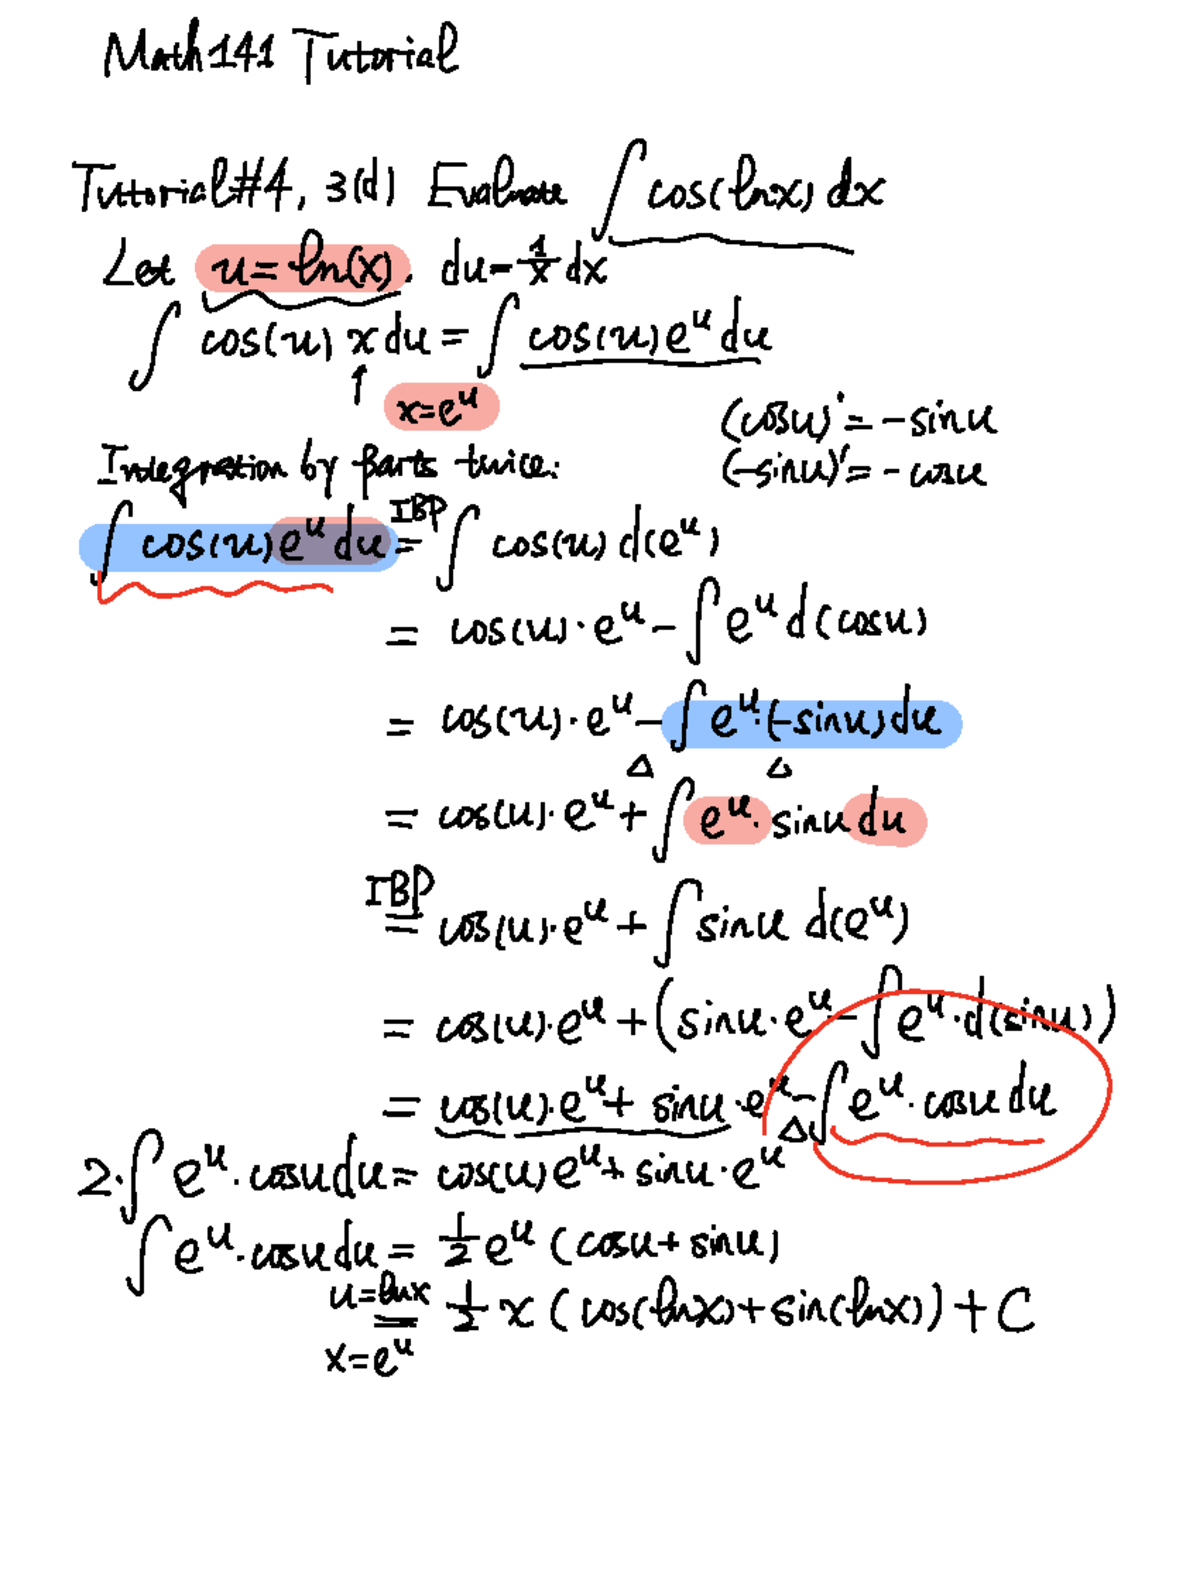 Math 141 Tutorial
Tutorial#4, 3(d) Evaluate ∫ cos(lnx) dx
Let u = ln(x). du = 1/x dx
∫ cos(u) x du = ∫ cos(u) e^u du
↑ x=e^u
(cosu)' = -sinu
Integration by parts twice:
(-sinu)' = -cosu
∫ cos(u) e^u du IBP= ∫ cos(u) d(e^u)
= cos(u)·e^u - ∫ e^u d(cosu)
= cos(u)·e^u - ∫ e^u·(-sinu) du
△ △
= cos(u)·e^u + ∫ e^u· sinu du
IBP
= cos(u)·e^u + ∫ sinu d(e^u)
= cos(u)·e^u + (sinu·e^u - ∫ e^u·d(sinu))
= cos(u)·e^u + sinu·e^u - ∫ e^u·cosu du
△
2·∫ e^u·cosu du = cos(u)e^u + sinu·e^u
∫ e^u·cosu du = 1/2 e^u (cosu + sinu)
u=lnx
= 1/2 x (cos(lnx) + sin(lnx)) + C
x=e^u